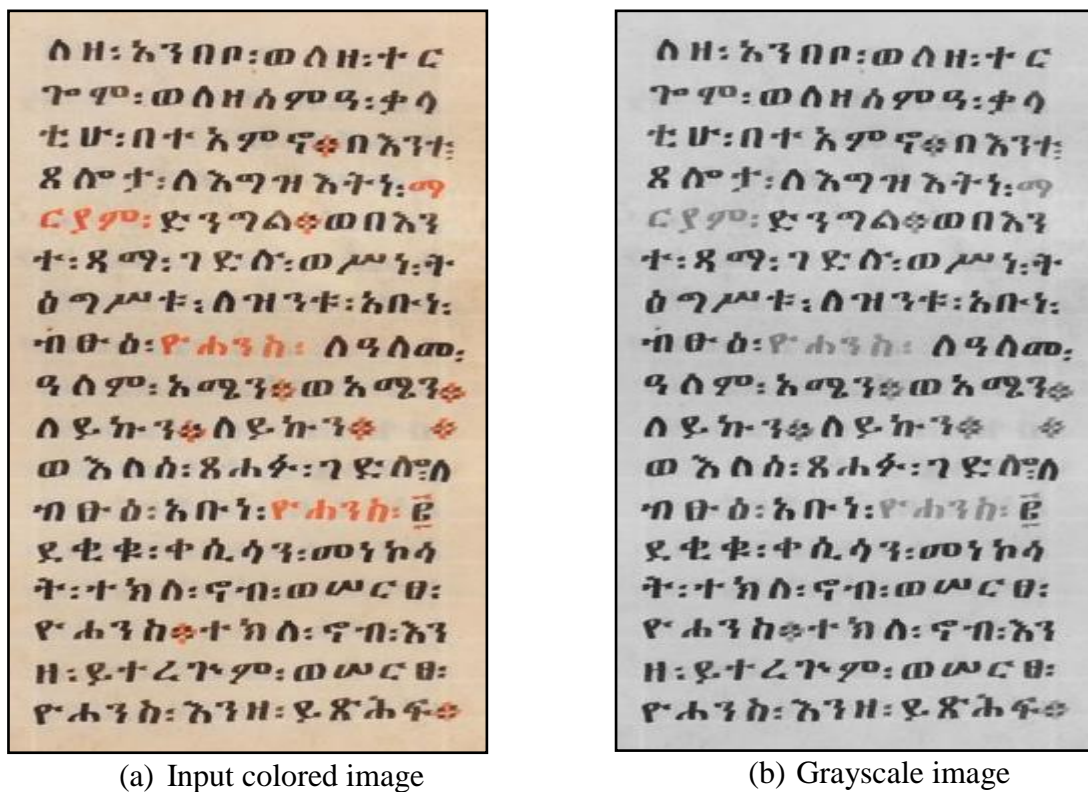 ለዘ፡አንበቦ፡ወለዘ፡ተር
ጐሞ፡ወለዘሰምዓ፡ቃላ
ቲሁ፡በተአምኖ፨በእንተ፡
ጸሎታ፡ለእግዝእትነ፡ማ
ርያም፡ድንግል፨ወበእን
ተ፡ጻማ፡ገድሉ፡ወሥነ፡ት
ዕግሥቱ፡ለዝንቱ፡አቡነ፡
ብፁዕ፡ዮሐንስ፡ ለዓለመ፡
ዓለም፡አሜን፨ወአሜን፨
ለይኩን፨ለይኩን፨ ፨
ወእለሰ፡ጸሐፉ፡ገድሎ፡ለ
ብፁዕ፡አቡነ፡ዮሐንስ፡፪
ደቂቁ፡ቀሲሳን፡መነኮሳ
ት፡ተክለ፡ኖብ፡ወሠርፀ፡
ዮሐንስ፨ተክለ፡ኖብ፡እን
ዘ፡ይተረጕም፡ወሠርፀ፡
ዮሐንስ፡እንዘ፡ይጽሕፍ፨
(a) Input colored image
ለዘ፡አንበቦ፡ወለዘ፡ተር
ጐሞ፡ወለዘሰምዓ፡ቃላ
ቲሁ፡በተአምኖ፨በእንተ፡
ጸሎታ፡ለእግዝእትነ፡ማ
ርያም፡ድንግል፨ወበእን
ተ፡ጻማ፡ገድሉ፡ወሥነ፡ት
ዕግሥቱ፡ለዝንቱ፡አቡነ፡
ብፁዕ፡ዮሐንስ፡ ለዓለመ፡
ዓለም፡አሜን፨ወአሜን፨
ለይኩን፨ለይኩን፨ ፨
ወእለሰ፡ጸሐፉ፡ገድሎ፡ለ
ብፁዕ፡አቡነ፡ዮሐንስ፡፪
ደቂቁ፡ቀሲሳን፡መነኮሳ
ት፡ተክለ፡ኖብ፡ወሠርፀ፡
ዮሐንስ፨ተክለ፡ኖብ፡እን
ዘ፡ይተረጕም፡ወሠርፀ፡
ዮሐንስ፡እንዘ፡ይጽሕፍ፨
(b) Grayscale image